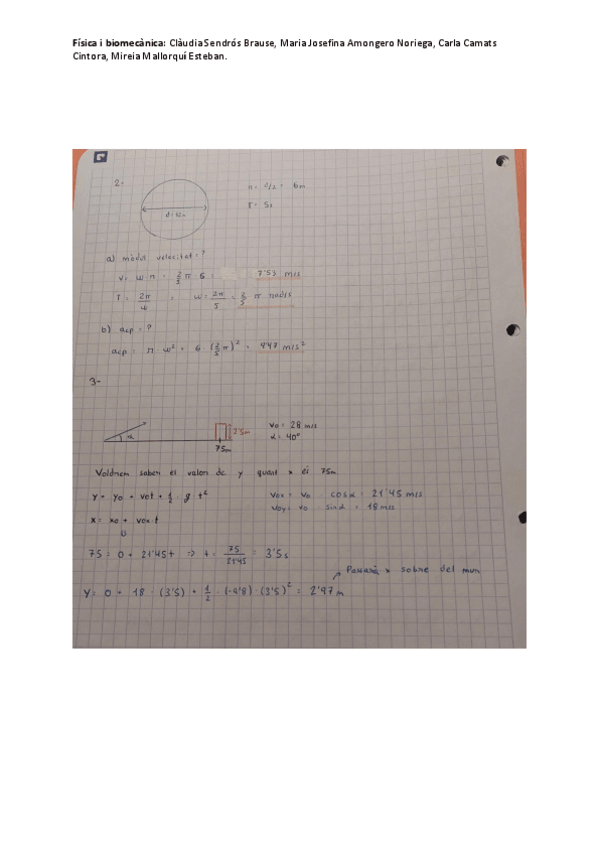 Física i biomecànica: Clàudia Sendrós Brause, Maria Josefina Amongero Noriega, Carla Camats
Cintora, Mireia Mallorquí Esteban.
2-
T = 5s
a) mòdul velocitat = ?
7'53 m/s
T = 2π/w = w = 2π/5 = 2/5 π rad/s
b) acp = ?
acp = r · w² = 6 · (2/5 π)² =
3-
vo = 28 m/s
α = 40°
α
2'5m
75m
Voldrem saber el valor de y quan x és 75m
y = yo + vot + 1/2 · g t²
vox = vo · cosα = 21'45 m/s
voy = vo · sinα = 18 m/s
x = xo + vox · t
75 = 0 + 21'45t => t = 75/21'45 = 3'5s
Passarà x sobre del mur
y = 0 + 18 · (3'5) + 1/2 · (-9'8) · (3'5)² = 2'97 m